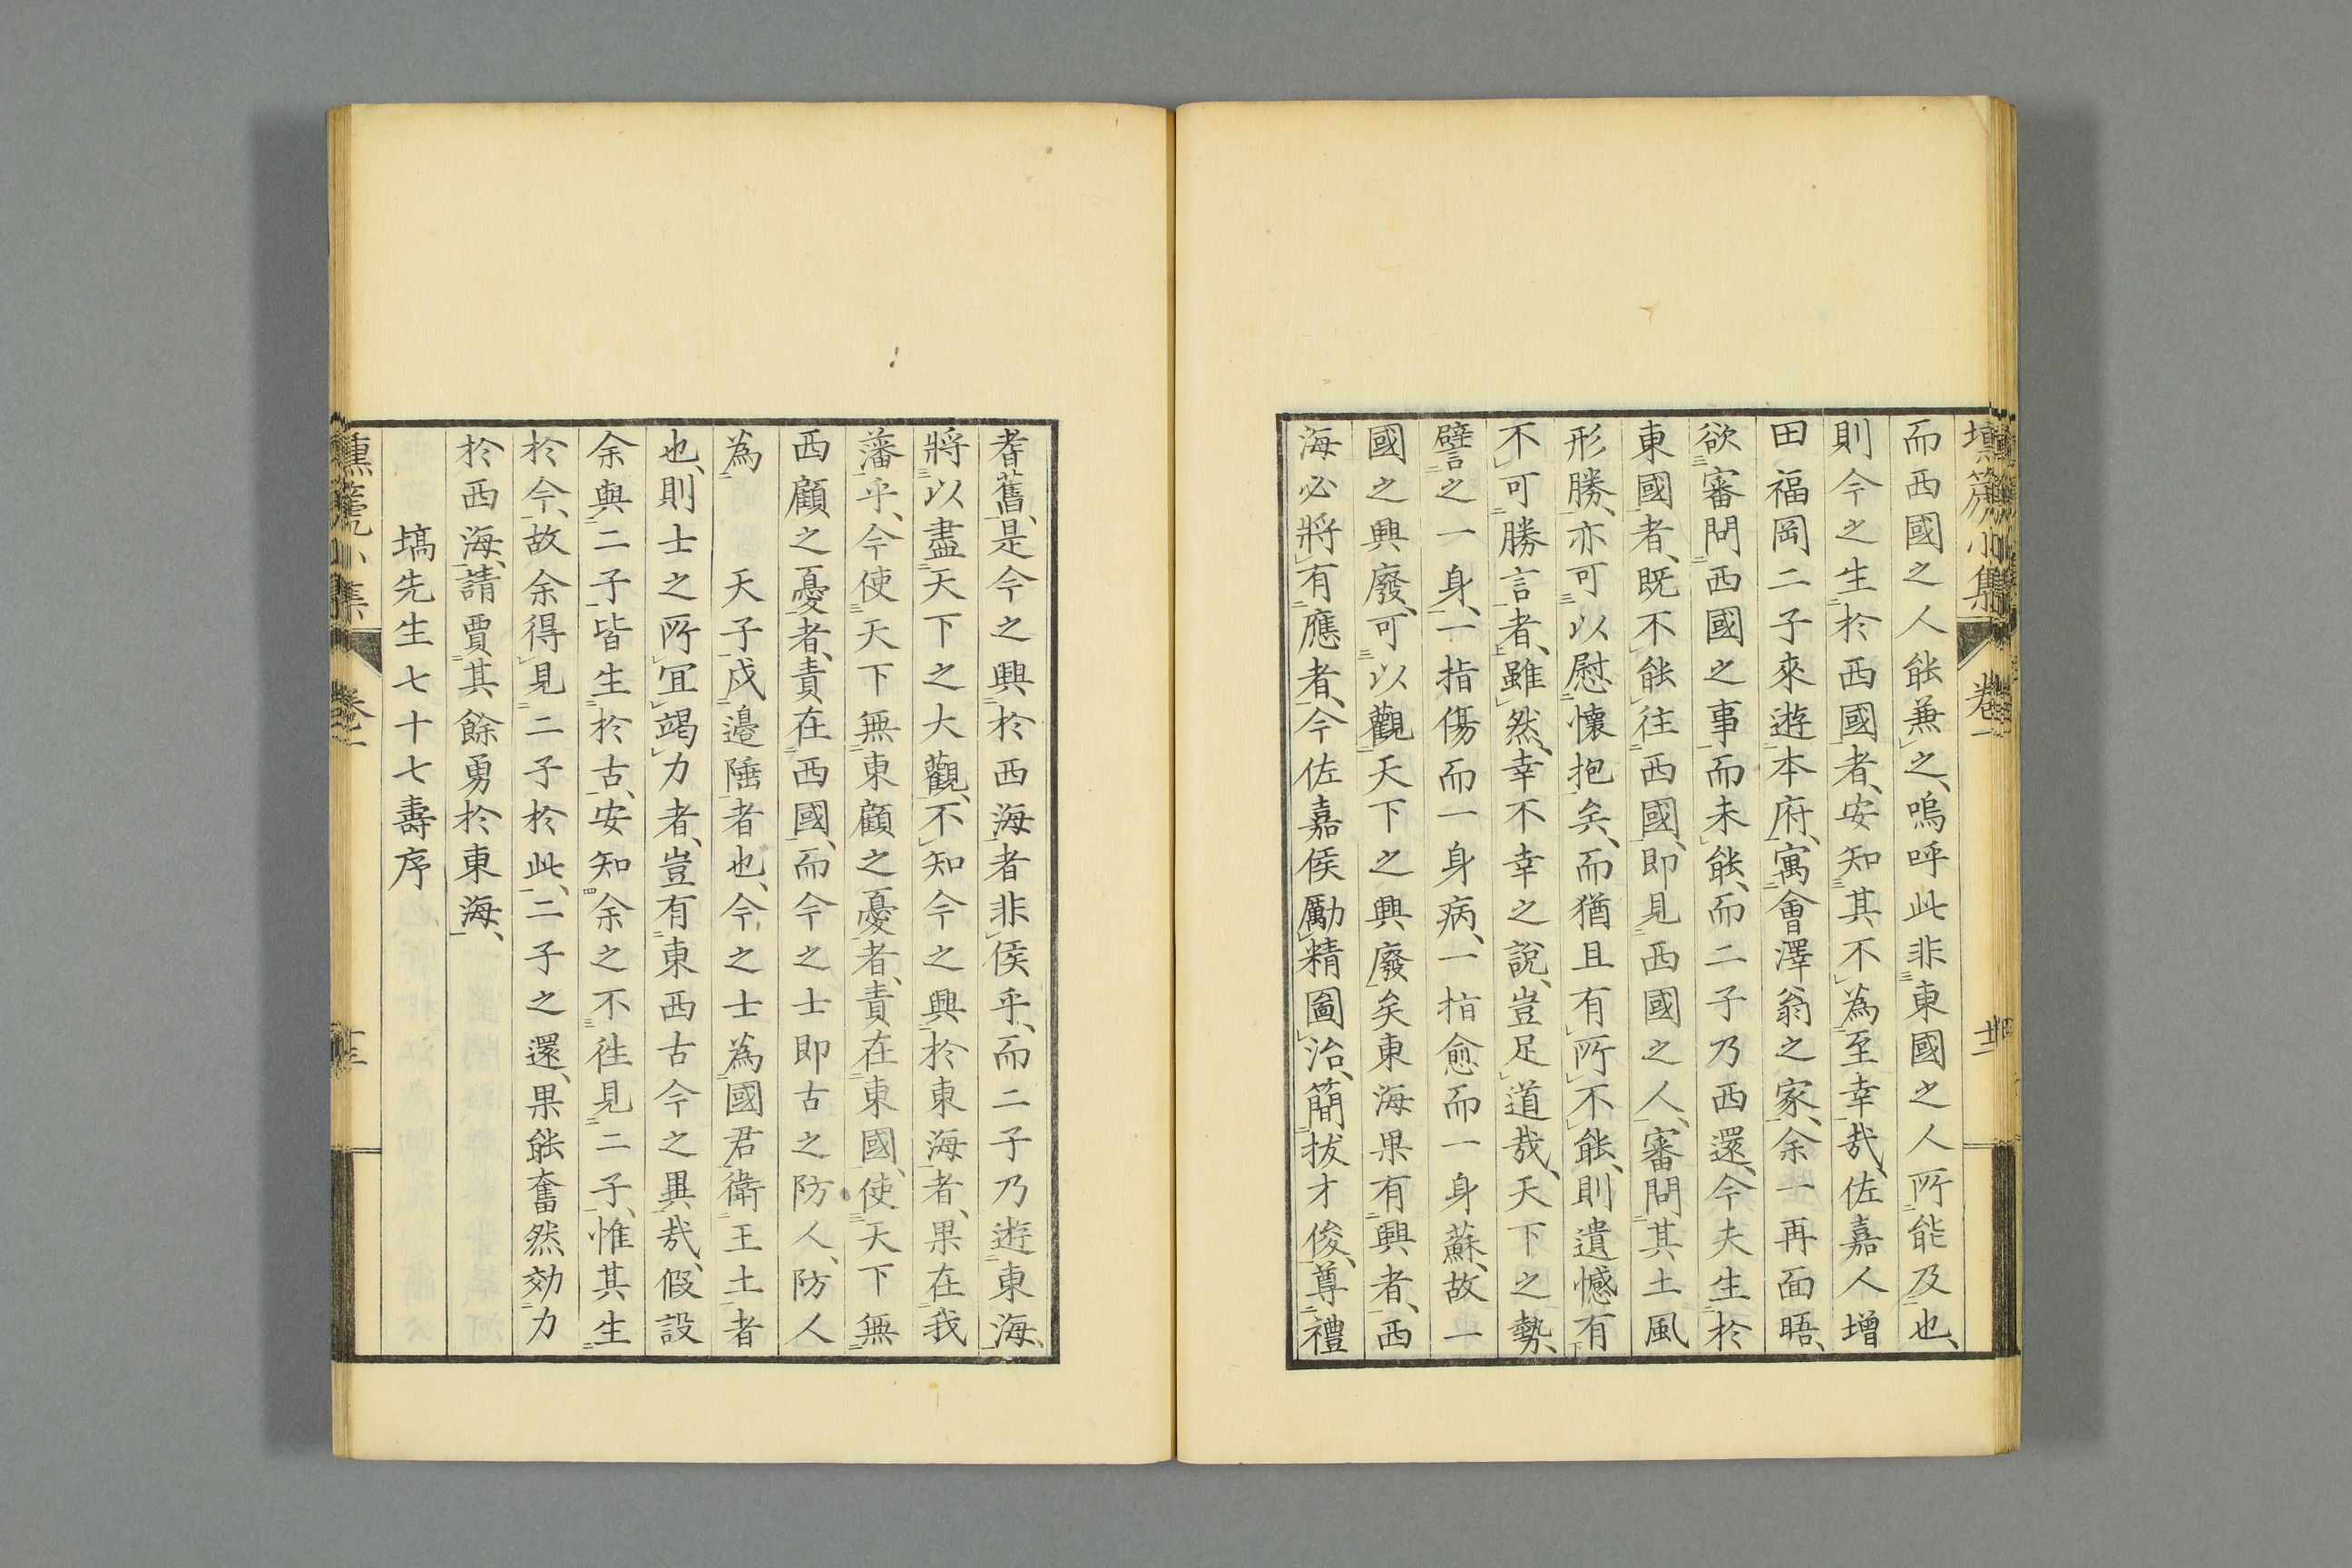 而西國之人能兼之、嗚呼此非東國之人所能及也、
則今之生於西國者、安知其不為至幸哉、佐嘉人增
田福岡二子來遊本府、寓會澤翁之家、余一再面晤、
欲審問西國之事而未能、而二子乃西還、今夫生於
東國者、既不能往西國、即見西國之人、審問其土風
形勝、亦可以慰懷抱矣、而猶且有所不能、則遺憾有
不可勝言者、雖然、幸不幸之說、豈足道哉、天下之勢、
譬之一身、一指傷而一身病、一指愈而一身蘇、故一
國之興廢、可以觀天下之興廢矣東海果有興者、西
海必將有應者、今佐嘉侯勵精圖治、簡拔才俊、尊禮
耆舊、是今之興於西海者非侯乎、而二子乃遊東海、
將以盡天下之大觀、不知今之興於東海者、果在我
藩乎、今使天下無東顧之憂者、責在東國、使天下無
西顧之憂者、責在西國、而今之士即古之防人、防人
為　天子戍邊陲者也、今之士為國君衛王土者
也、則士之所宜竭力者、豈有東西古今之異哉、假設
余與二子皆生於古、安知余之不往見二子、惟其生
於今、故余得見二子於此、二子之還、果能奮然効力
於西海、請賈其餘勇於東海、
塙先生七十七壽序